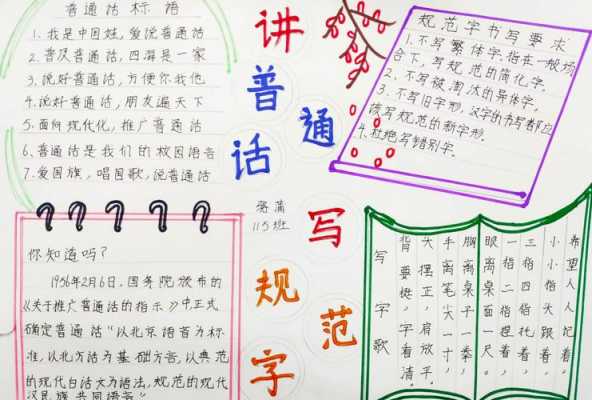 普通话标语
1、我是中国娃，爱说普通话
2、普及普通话，四海是一家
3、说好普通话，方便你我他
4、说好普通话，朋友遍天下
5、面向现代化，推广普通话
6、普通话是我们的校园语言
7、爱国旗，唱国歌，说普通话
讲普通话
写规范字
规范字书写要求
1、不写繁体字.指在一般场
合下，写规范的简化字。
2、不写被淘汰的异体字。
3、不写旧字形，汉字的书写都应
该写规范的新字形。
4、杜绝写错别字。
115班
你知道吗？
1956年2月6日，国务院颁布的
《关于推广普通话的指示》中正式
确定普通话“以北京语音为标
准，以北方话为基础方言，以典范
的现代白话文为语法，规范的现代
汉民族共同语言”
写字歌
希望人人记着
小小指头跟着，
三指四指托着，
一指二指捏着，
眼离桌面一尺。
胸离桌子一拳，
手离笔尖一寸，
大摆正，肩放平，
背要挺，字看清。